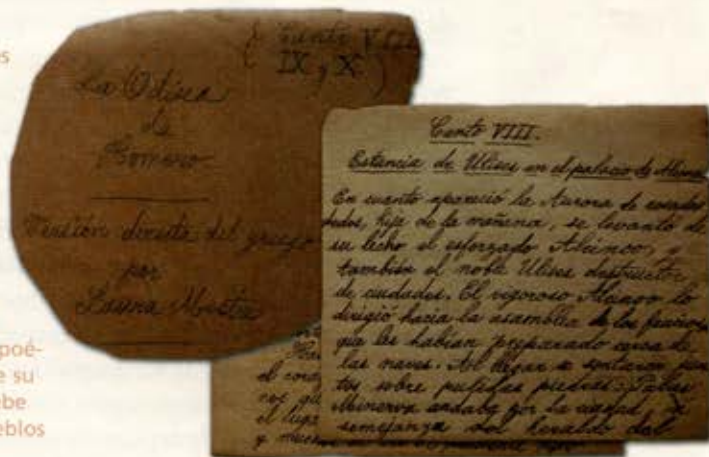 s
{ Canto VIII
{ IX y X )
La Odisea
de
Homero
Versión directa del griego
por
Laura Mestre
Canto VIII.
Estancia de Ulises en el palacio de Alcinoo
En cuanto apareció la Aurora de rosados
dedos, hija de la mañana, se levantó de
su lecho el esforzado Alcinoo, y
también el noble Ulises destructor
de ciudades. El vigoroso Alcinoo lo
dirigió hacia la asamblea de los feacios
que les habían preparado cerca de
las naves. Al llegar se sentaron jun
tos sobre pulidas piedras. Palas
Minerva andaba por la ciudad, a
semejanza del heraldo del
el cora
nos qu
el luga
y
poé-
e su
ebe
eblos